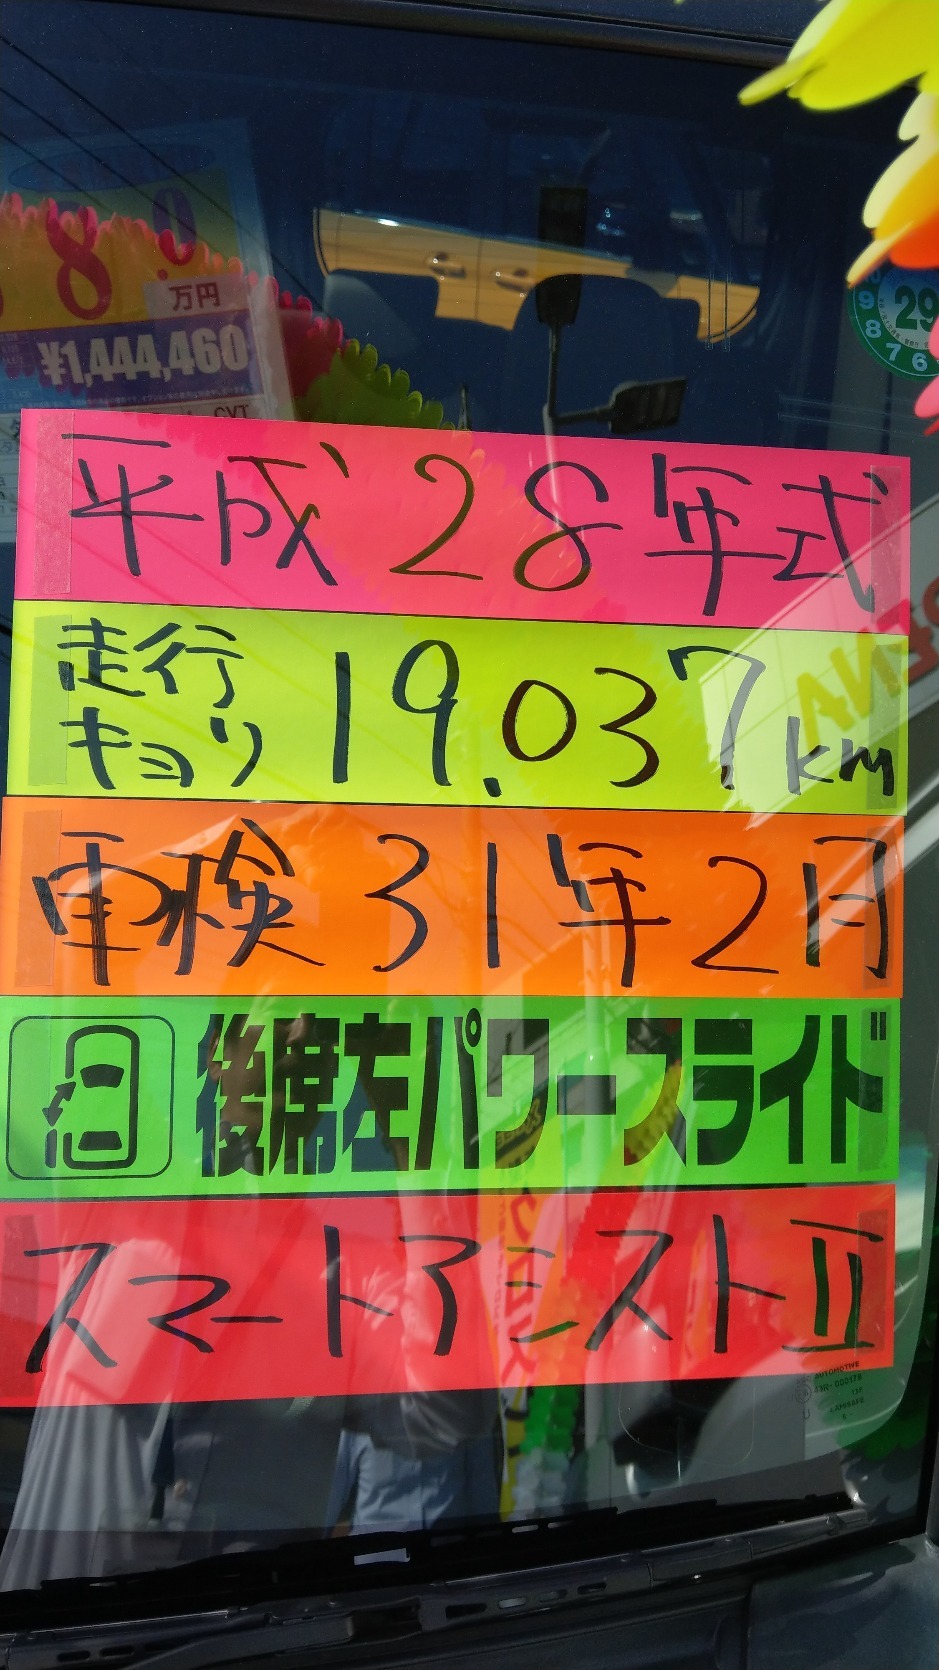 8.0
万円
¥1,444,460
CVT
29
9
8
7 6
平成28年式
走行
キョリ 19.037km
車検 31年2月
後席左パワースライド
スマートアシストⅡ
AUTOMOTIVE
43R-000178